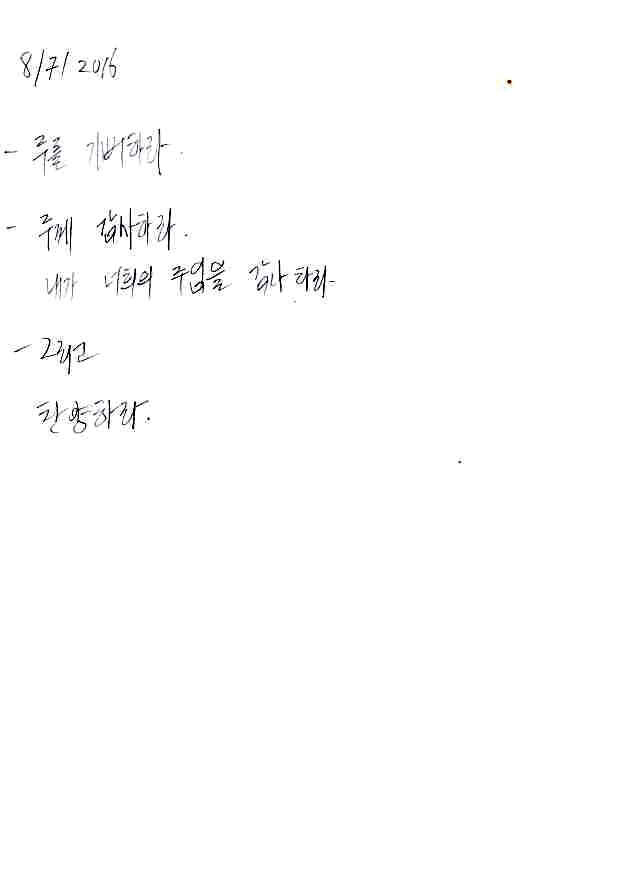 8/7/2016
- 주를 기뻐하라.
- 주께 감사하라.
내가 너희의 주임을 감사하라
- 그리고
찬양하라.